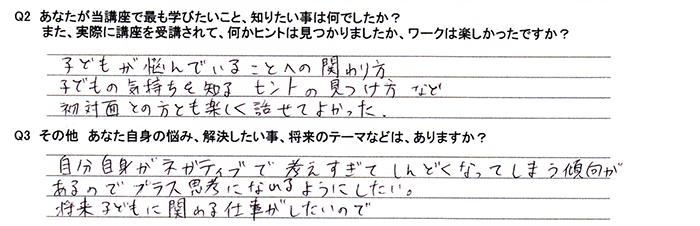 Q2 あなたが当講座で最も学びたいこと、知りたい事は何でしたか？
また、実際に講座を受講されて、何かヒントは見つかりましたか、ワークは楽しかったですか？
子どもが悩んでいることへの関わり方
子どもの気持ちを知る ヒントの見つけ方 など
初対面との方とも楽しく話せてよかった.
Q3 その他 あなた自身の悩み、解決したい事、将来のテーマなどは、ありますか？
自分自身がネガティブで考えすぎてしんどくなってしまう傾向が
あるのでプラス思考になれるようにしたい。
将来子どもに関わる仕事がしたいので